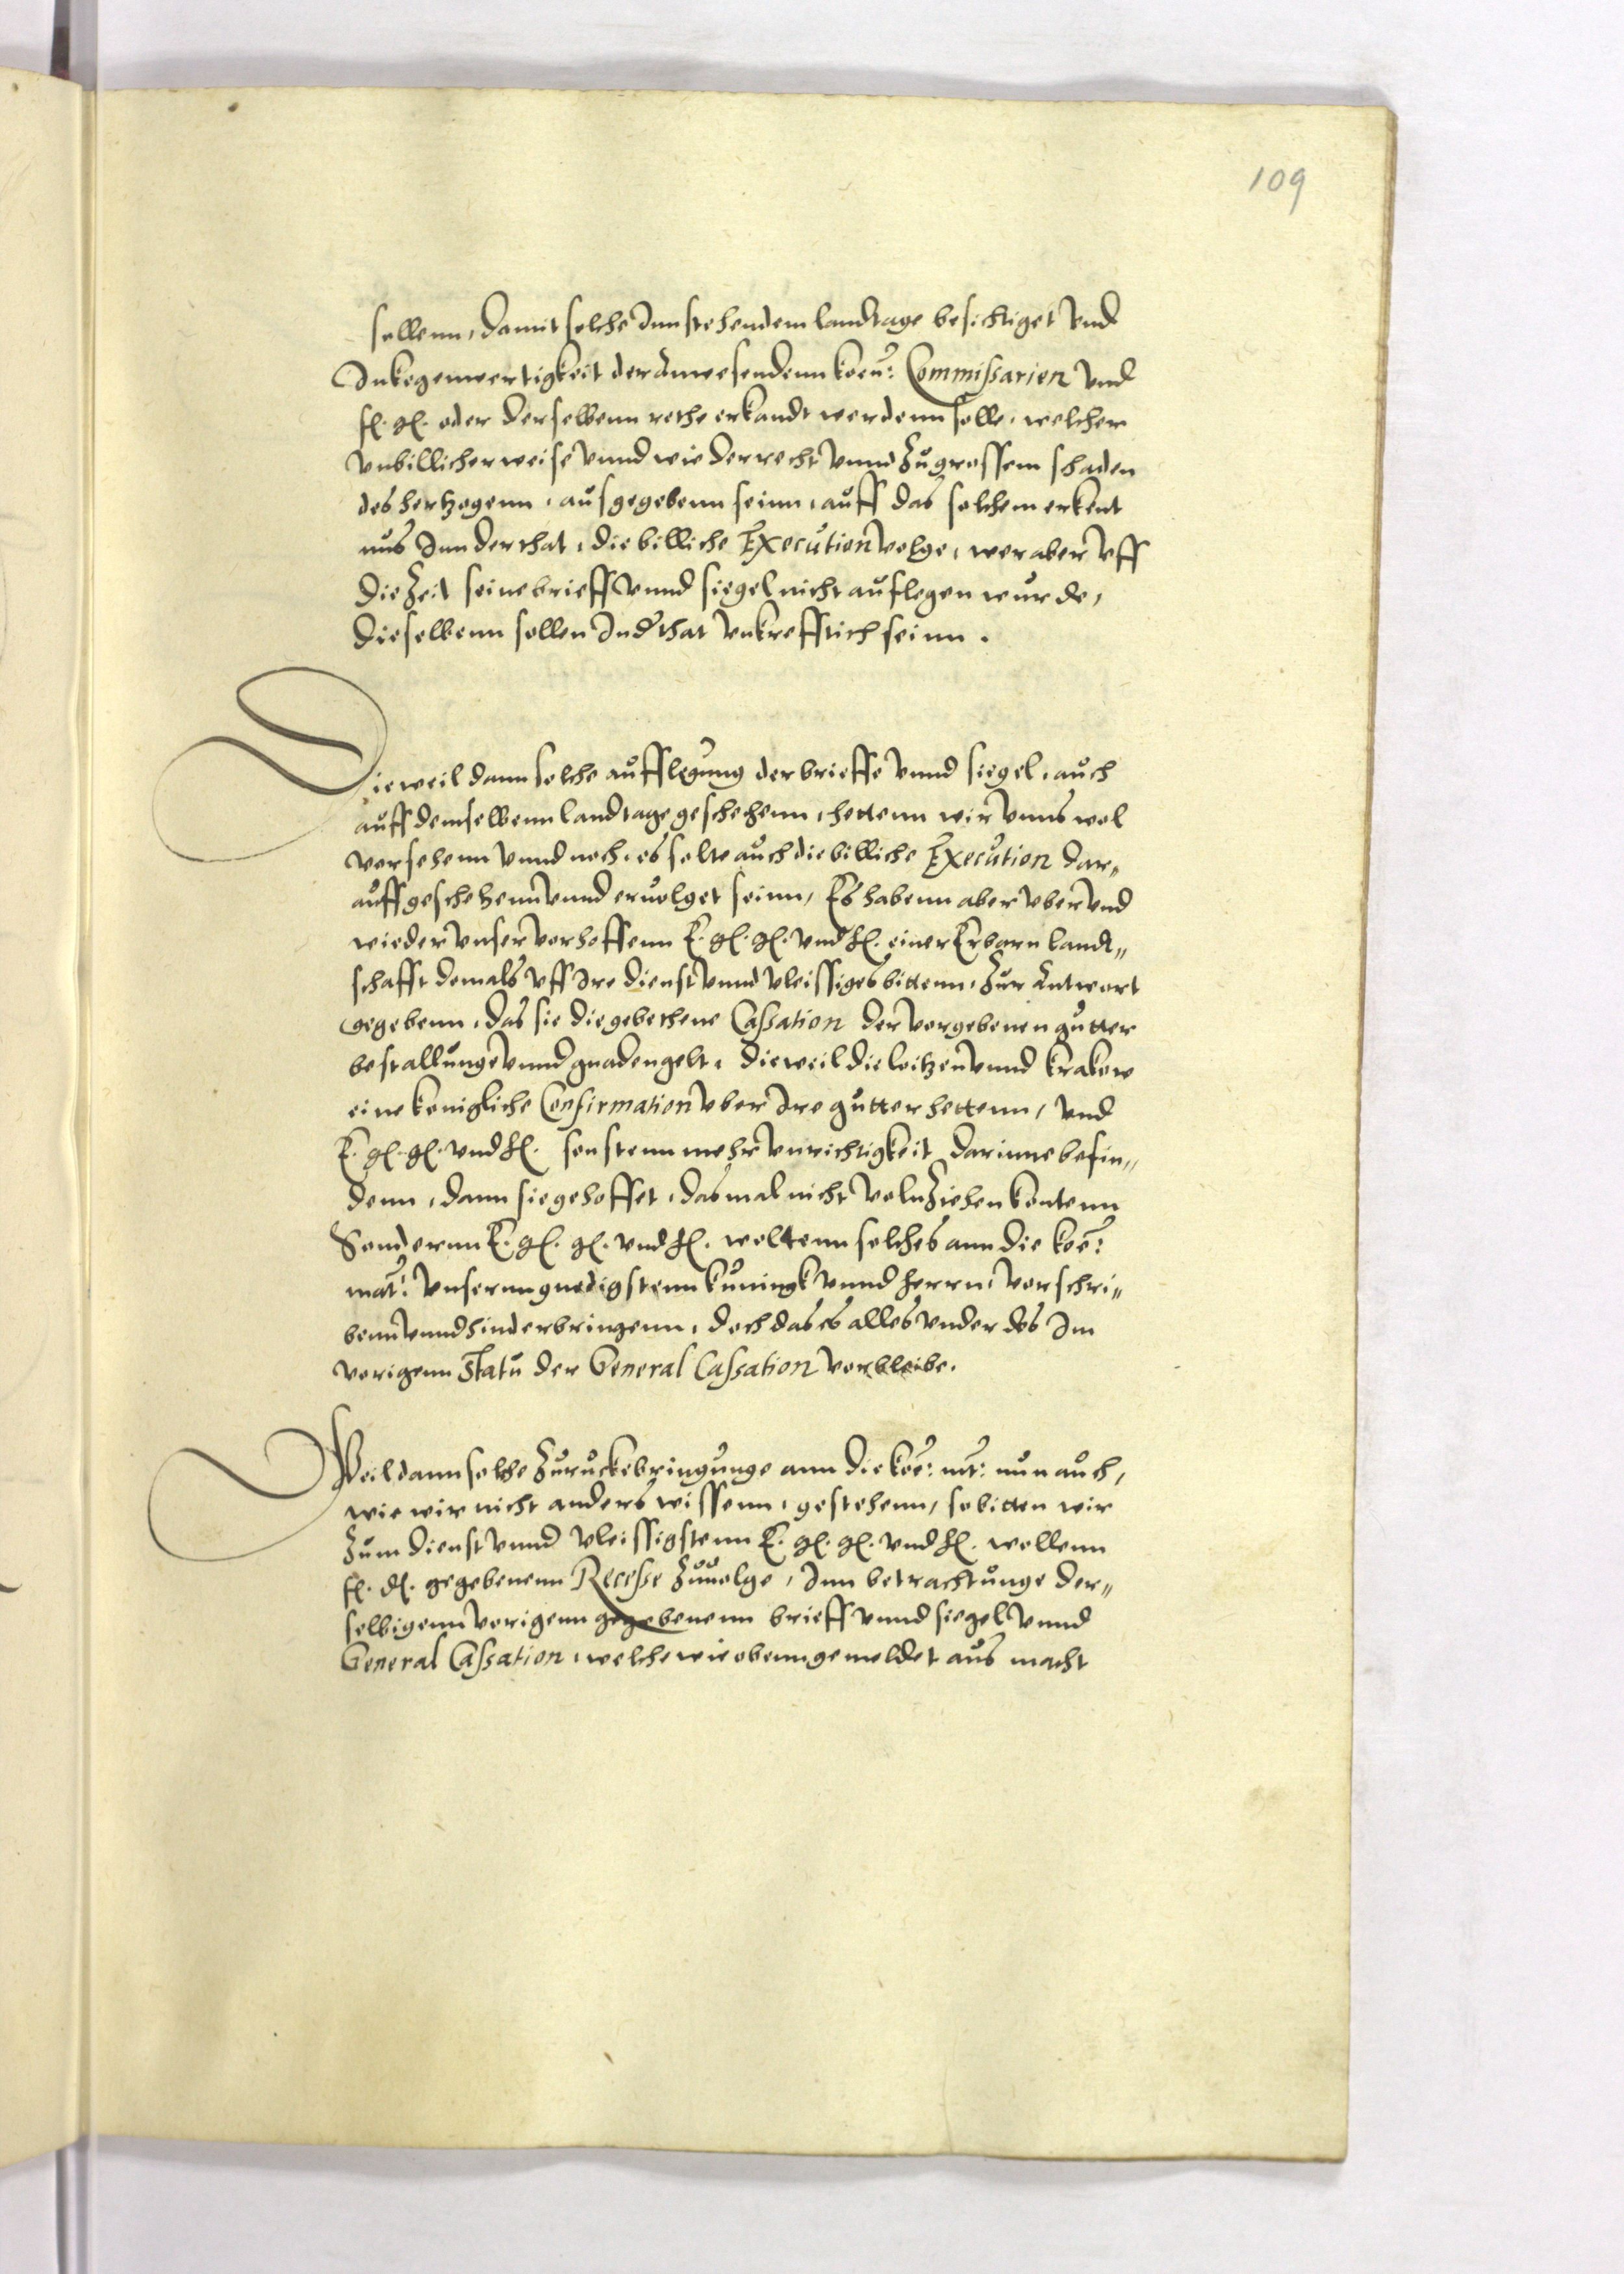 109
sollenn, damit solche Inn stehendem landtage besichtiget vnd
Inkegenwertigkeit der Anwesendenn koen: Commissarien vnd
f. g. oder derselbenn rethe erkandt werdenn solle, welcher
vnbillicher weise vnnd wieder recht vnnd Zu grossem schaden
des hertzogenn, ausgegebenn seinn, auff das solchem erkent
nus Inn der that, die billiche Execution volge, wer aber vff
die Zeit seine brieff vnnd siegel nicht auflegen wurde,
dieselbenn sollen In der that vnkrefftich seinn.
Dieweil dann solche aufflegung der brieffe vnnd siegel, auch
auff demselbenn landtage geschehenn, hettenn wir vnns wol
vorsehenn vnnd noch, es solte auch die billiche Execution dar„
auff geschehenn vnnd eruolget seinn, Es habenn aber vber vnd
wieder vnser vorhoffenn E. g. g. vnd h. einer Erbarn landt„
schafft domals vff Ire dienst vnnd vleissiges bittenn, Zur Antwort
gegebenn, das sie die gebethene Cassation der vorgebenen gutter
bestallunge vnnd gnadengelt, dieweil die loitzen vnnd krakow
eine konigliche Confirmation vber Ire gutter hettenn, vnd
E. g. g. vnd h. sonstenn mehr vnrichtigkeit darinne befin„
denn, dann sie gehoffet, dasmal nicht volnZiehen kontenn
Sondernn E. g. g. vnd h. woltenn solches ann die koe:
mat: vnsernn gnedigstenn kuningk vnnd herrn, vorschri„
benn vnnd hinderbringenn, doch das es alles vnder des Im
vorigenn Statu der General Cassation vorbleibe.
Weil dann solche Zuruckebringunge ann die koe: mt: nun auch,
wie wir nicht anders wissenn, gestehenn, so bitten wir
Zum dienst vnnd vleissigstenn E. g. g. vnd h. wollenn
f. d. gegebenenn Recesse Zuuolge, Inn betrachtunge der„
selbigenn vorigenn gegebenenn brieff vnnd siegel vnnd
General Cassation, welche wie obenn gemeldet aus macht